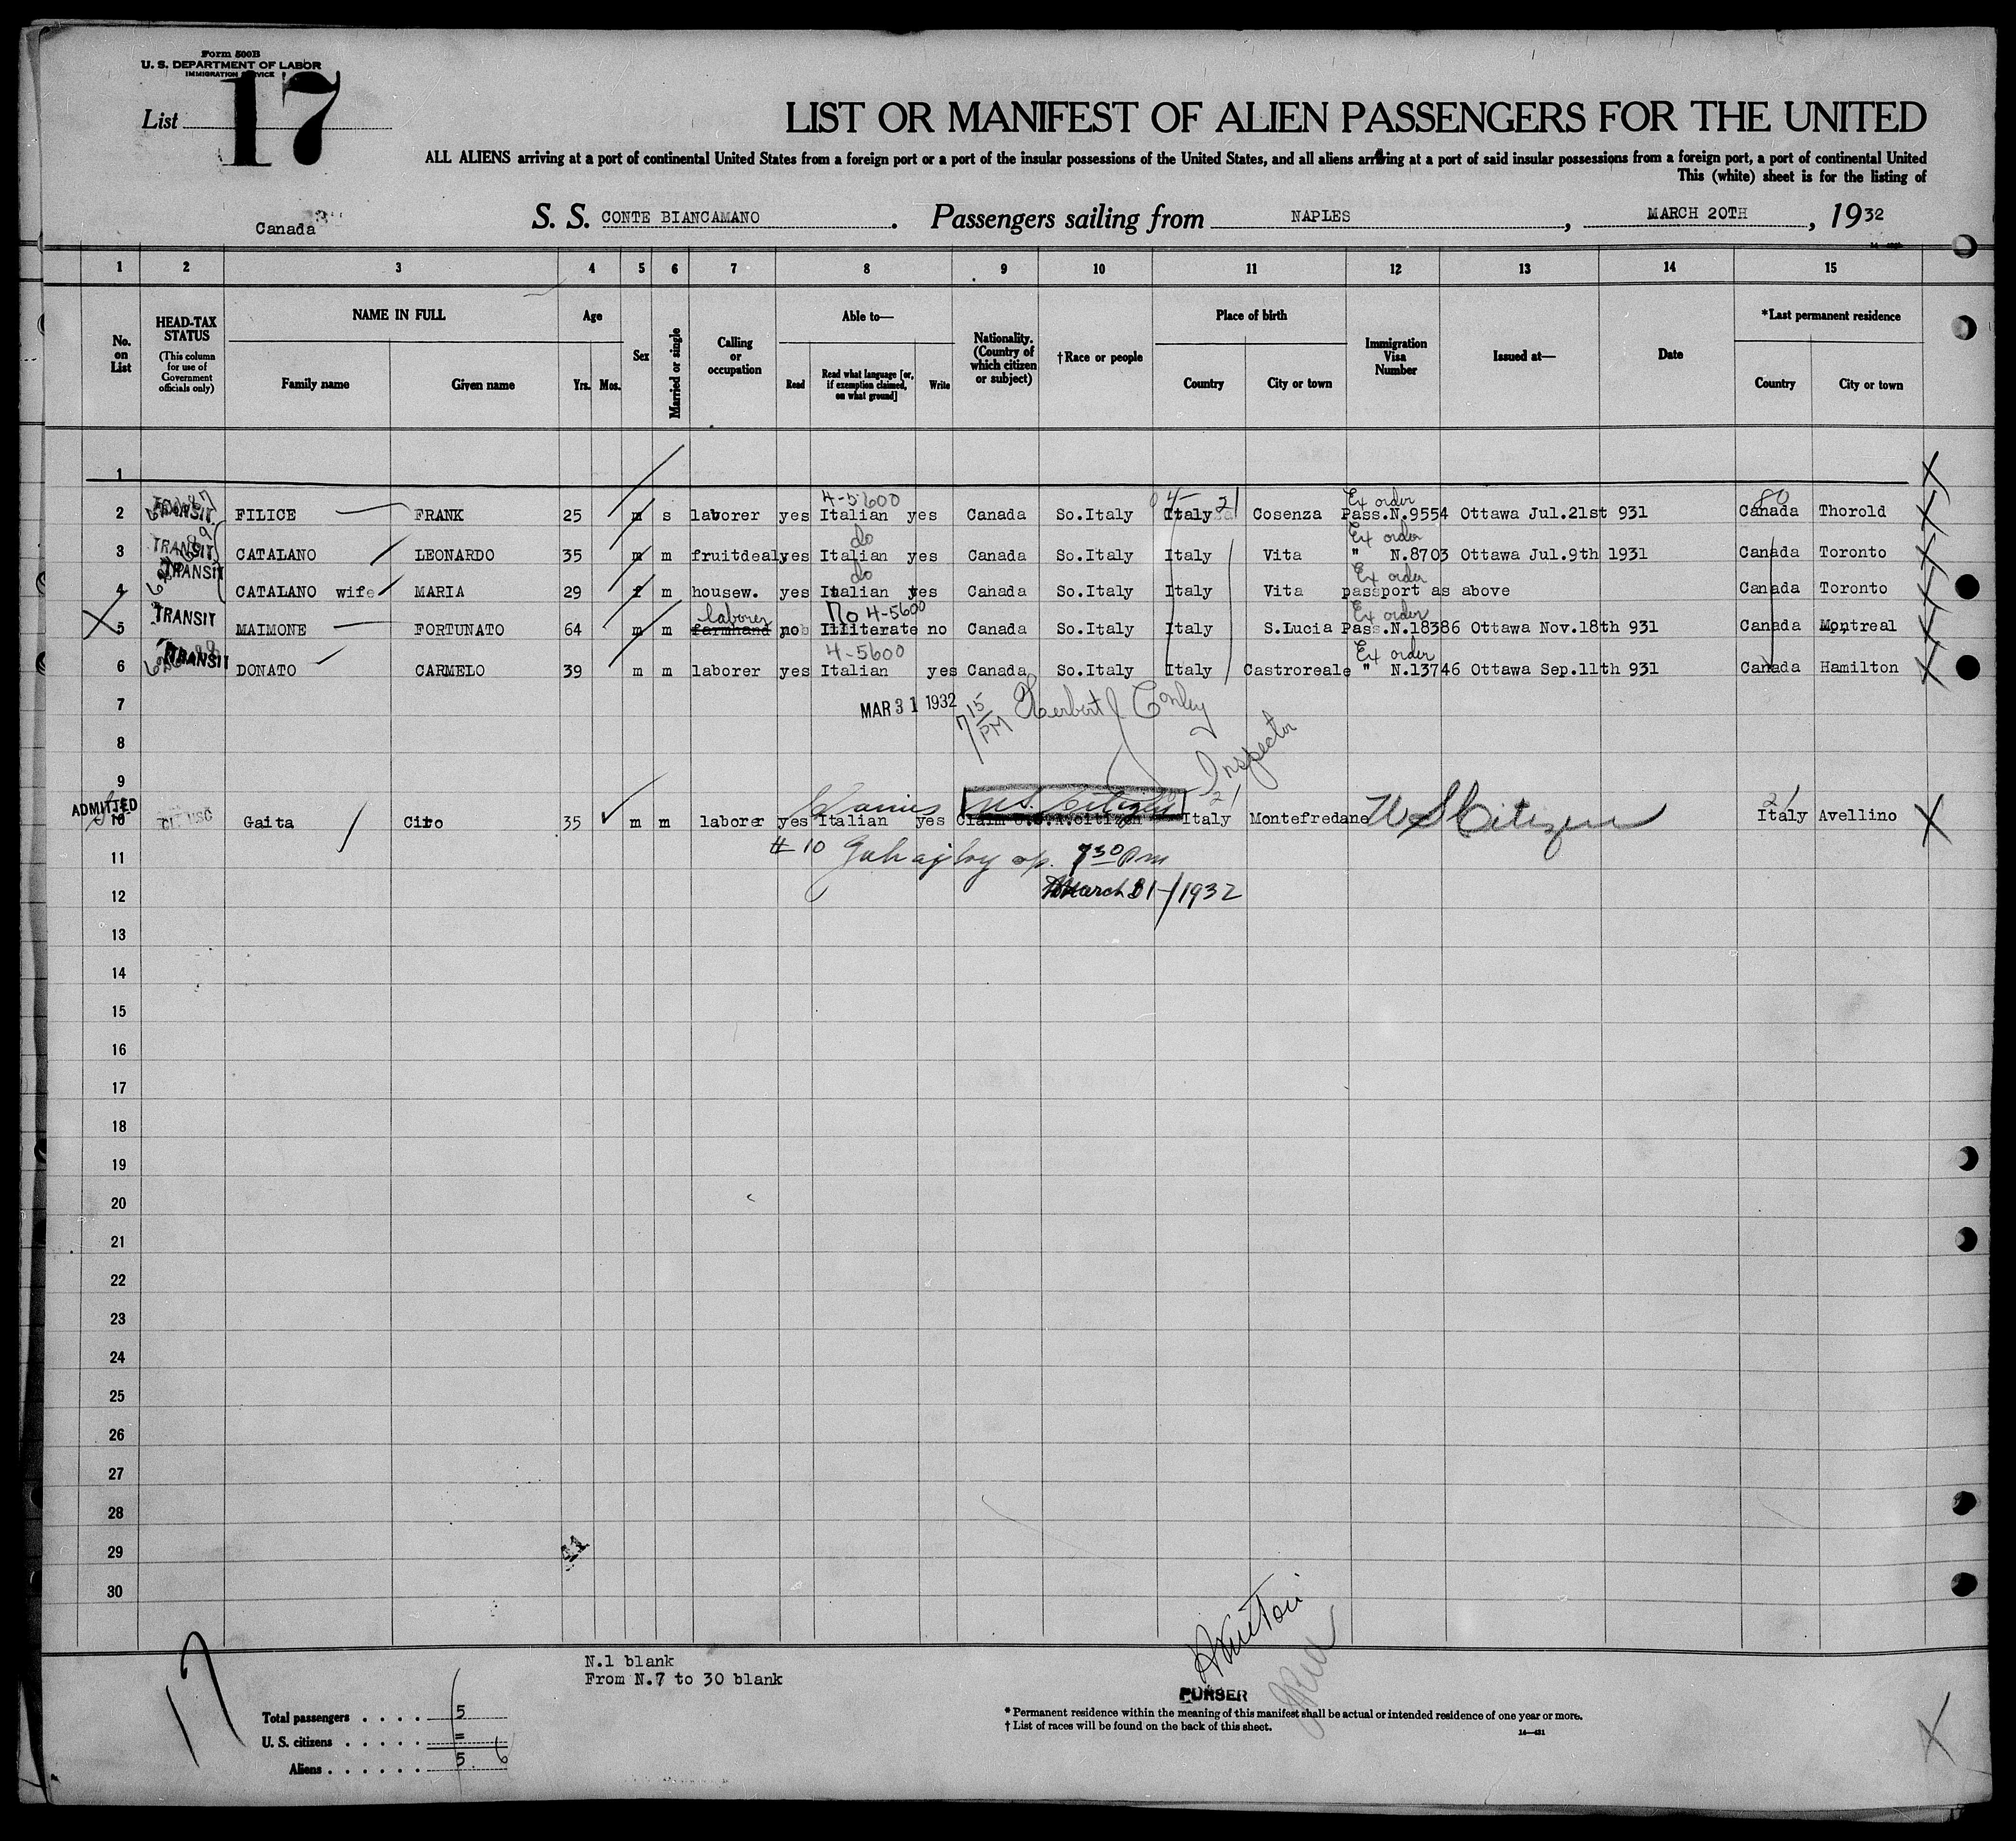 Form 500B
U. S. DEPARTMENT OF LABOR
IMMIGRATION SERVICE
List 17
LIST OR MANIFEST OF ALIEN PASSENGERS FOR THE UNITED
ALL ALIENS arriving at a port of continental United States from a foreign port or a port of the insular possessions of the United States, and all aliens arriving at a port of said insular possessions from a foreign port, a port of continental United
This (white) sheet is for the listing of
Canada
S. S. CONTE BIANCAMANO. Passengers sailing from NAPLES, MARCH 20TH, 1932
1 2 3 4 5 6 7 8 9 10 11 12 13 14 15
No. on List
HEAD-TAX STATUS
(This column for use of Government officials only)
NAME IN FULL
Family name
Given name
Age
Yrs. Mos.
Sex
Married or single
Calling or occupation
Able to—
Read
Read what language [or, if exemption claimed, on what ground]
Write
Nationality. (Country of which citizen or subject)
†Race or people
Place of birth
Country
City or town
Immigration Visa Number
Issued at—
Date
*Last permanent residence
Country
City or town
1
4-5600 Ex order 80
2 TRANSIT FILICE FRANK 25 m s laborer yes Italian yes Canada So.Italy Italy 21 Cosenza Pass.N.9554 Ottawa Jul.21st 931 Canada Thorold
do Ex order
3 TRANSIT CATALANO LEONARDO 35 m m fruitdeal yes Italian yes Canada So.Italy Italy Vita " N.8703 Ottawa Jul.9th 1931 Canada Toronto
do Ex order
4 TRANSIT CATALANO wife MARIA 29 f m housew. yes Italian yes Canada So.Italy Italy Vita passport as above Canada Toronto
laborer No 4-5600 Ex order
5 TRANSIT MAIMONE FORTUNATO 64 m m farmhand no Illiterate no Canada So.Italy Italy S.Lucia Pass.N.18386 Ottawa Nov.18th 931 Canada Montreal
4-5600 Ex order
6 TRANSIT DONATO CARMELO 39 m m laborer yes Italian yes Canada So.Italy Italy Castroreale " N.13746 Ottawa Sep.11th 931 Canada Hamilton
7 MAR 31 1932 715 PM Herbert J Conley
8 Inspector
9
ADMITTED U.S. Citizen 21 21
10 Gaita Ciro 35 m m laborer yes Italian yes Claim U.S.A.citizen Italy Montefredane U S Citizen Italy Avellino
11 # 10 730 Pm
12 March 31-/1932
13
14
15
16
17
18
19
20
21
22
23
24
25
26
27
28
29
30
N.1 blank
From N.7 to 30 blank
17
PURSER
Total passengers . . . . 5
U. S. citizens . . . . . =
Aliens . . . . . . 5 6
* Permanent residence within the meaning of this manifest shall be actual or intended residence of one year or more.
† List of races will be found on the back of this sheet.
14—431